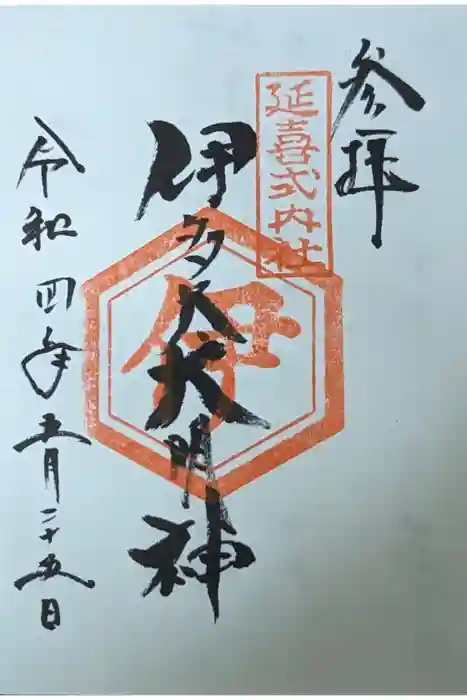 参拝
延喜式内社
伊多太大明神
伊
令和四年五月二十五日